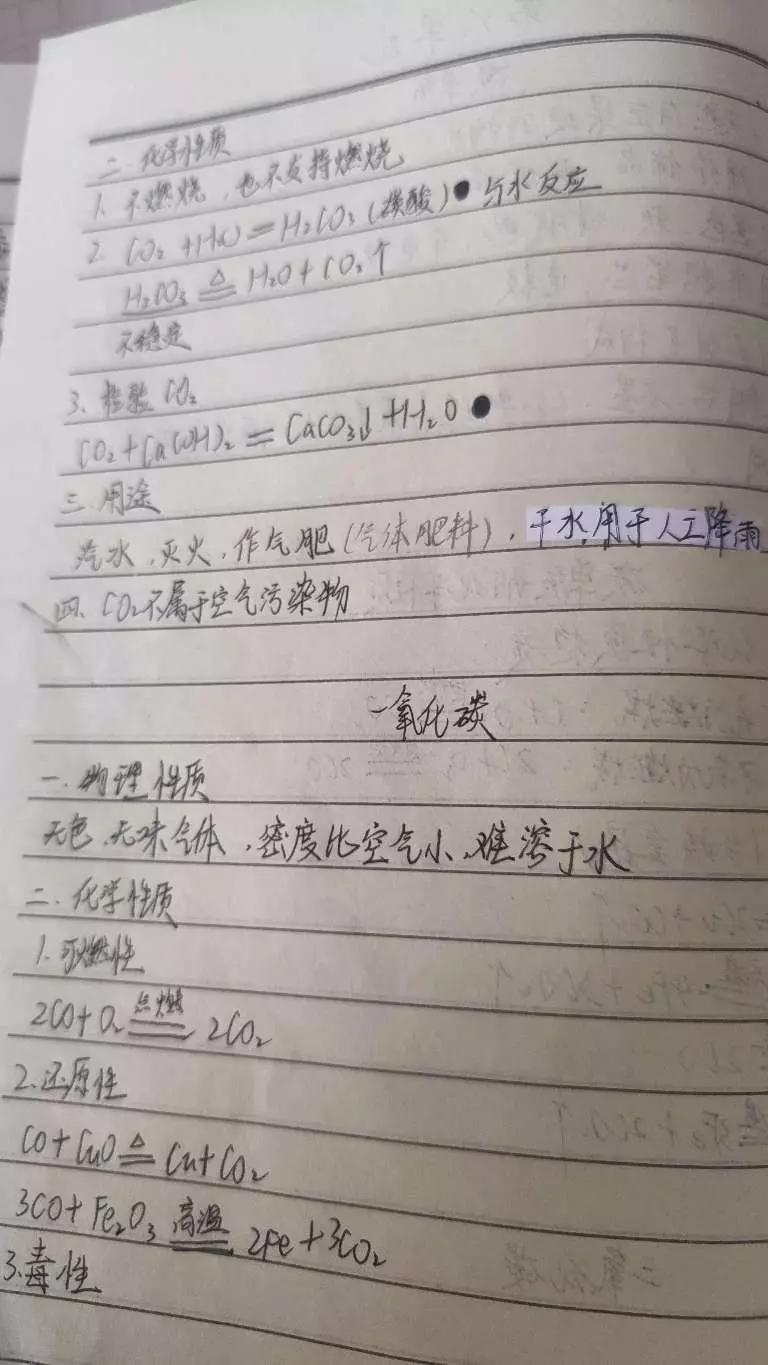 二.化学性质
1.不燃烧,也不支持燃烧
2. CO₂+H₂O=H₂CO₃(碳酸)●与水反应
H₂CO₃ ≜ H₂O+CO₂↑
不稳定
3.检验CO₂
CO₂+Ca(OH)₂=CaCO₃↓+H₂O●
三.用途
汽水、灭火、作气肥(气体肥料),干水,用于人工降雨
四、CO₂不属于空气污染物
一氧化碳
一.物理性质
无色、无味气体,密度比空气小、难溶于水
二.化学性质
1.可燃性
2CO+O₂ 点燃== 2CO₂
2.还原性
CO+CuO ≜ Cu+CO₂
3CO+Fe₂O₃ 高温== 2Fe+3CO₂
3.毒性